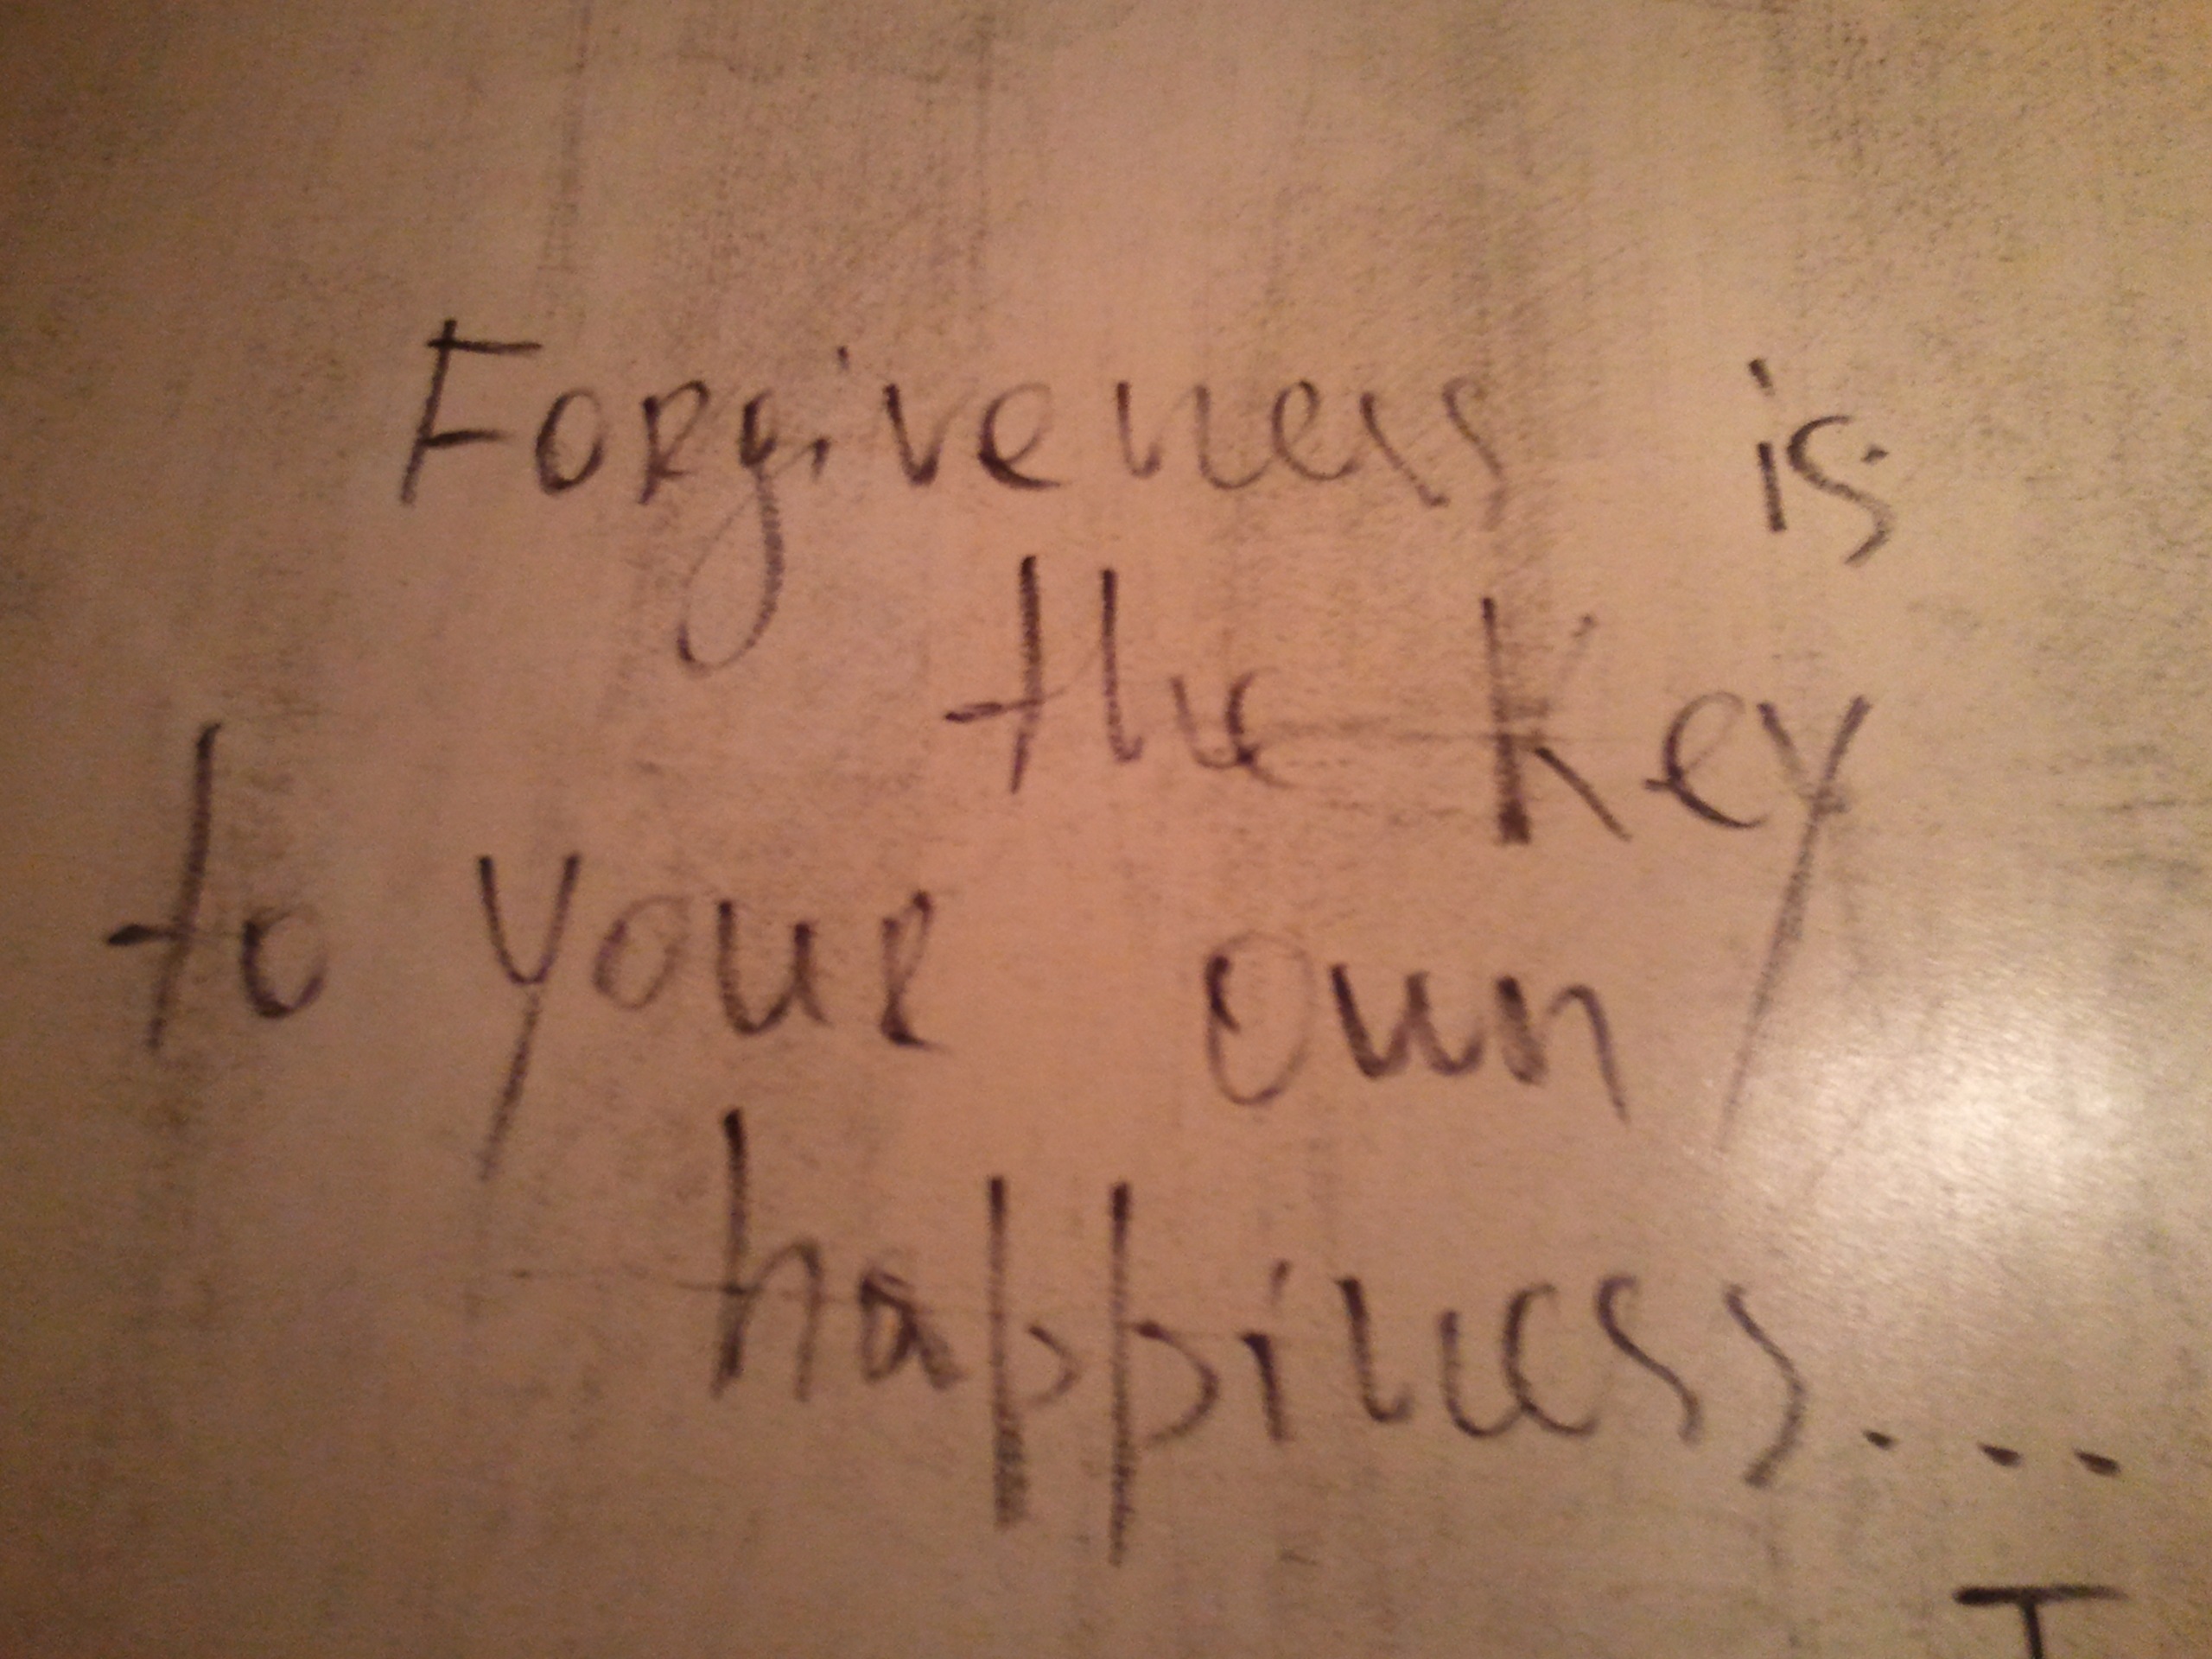 Forgiveness is
the Key
to your own
happiness....